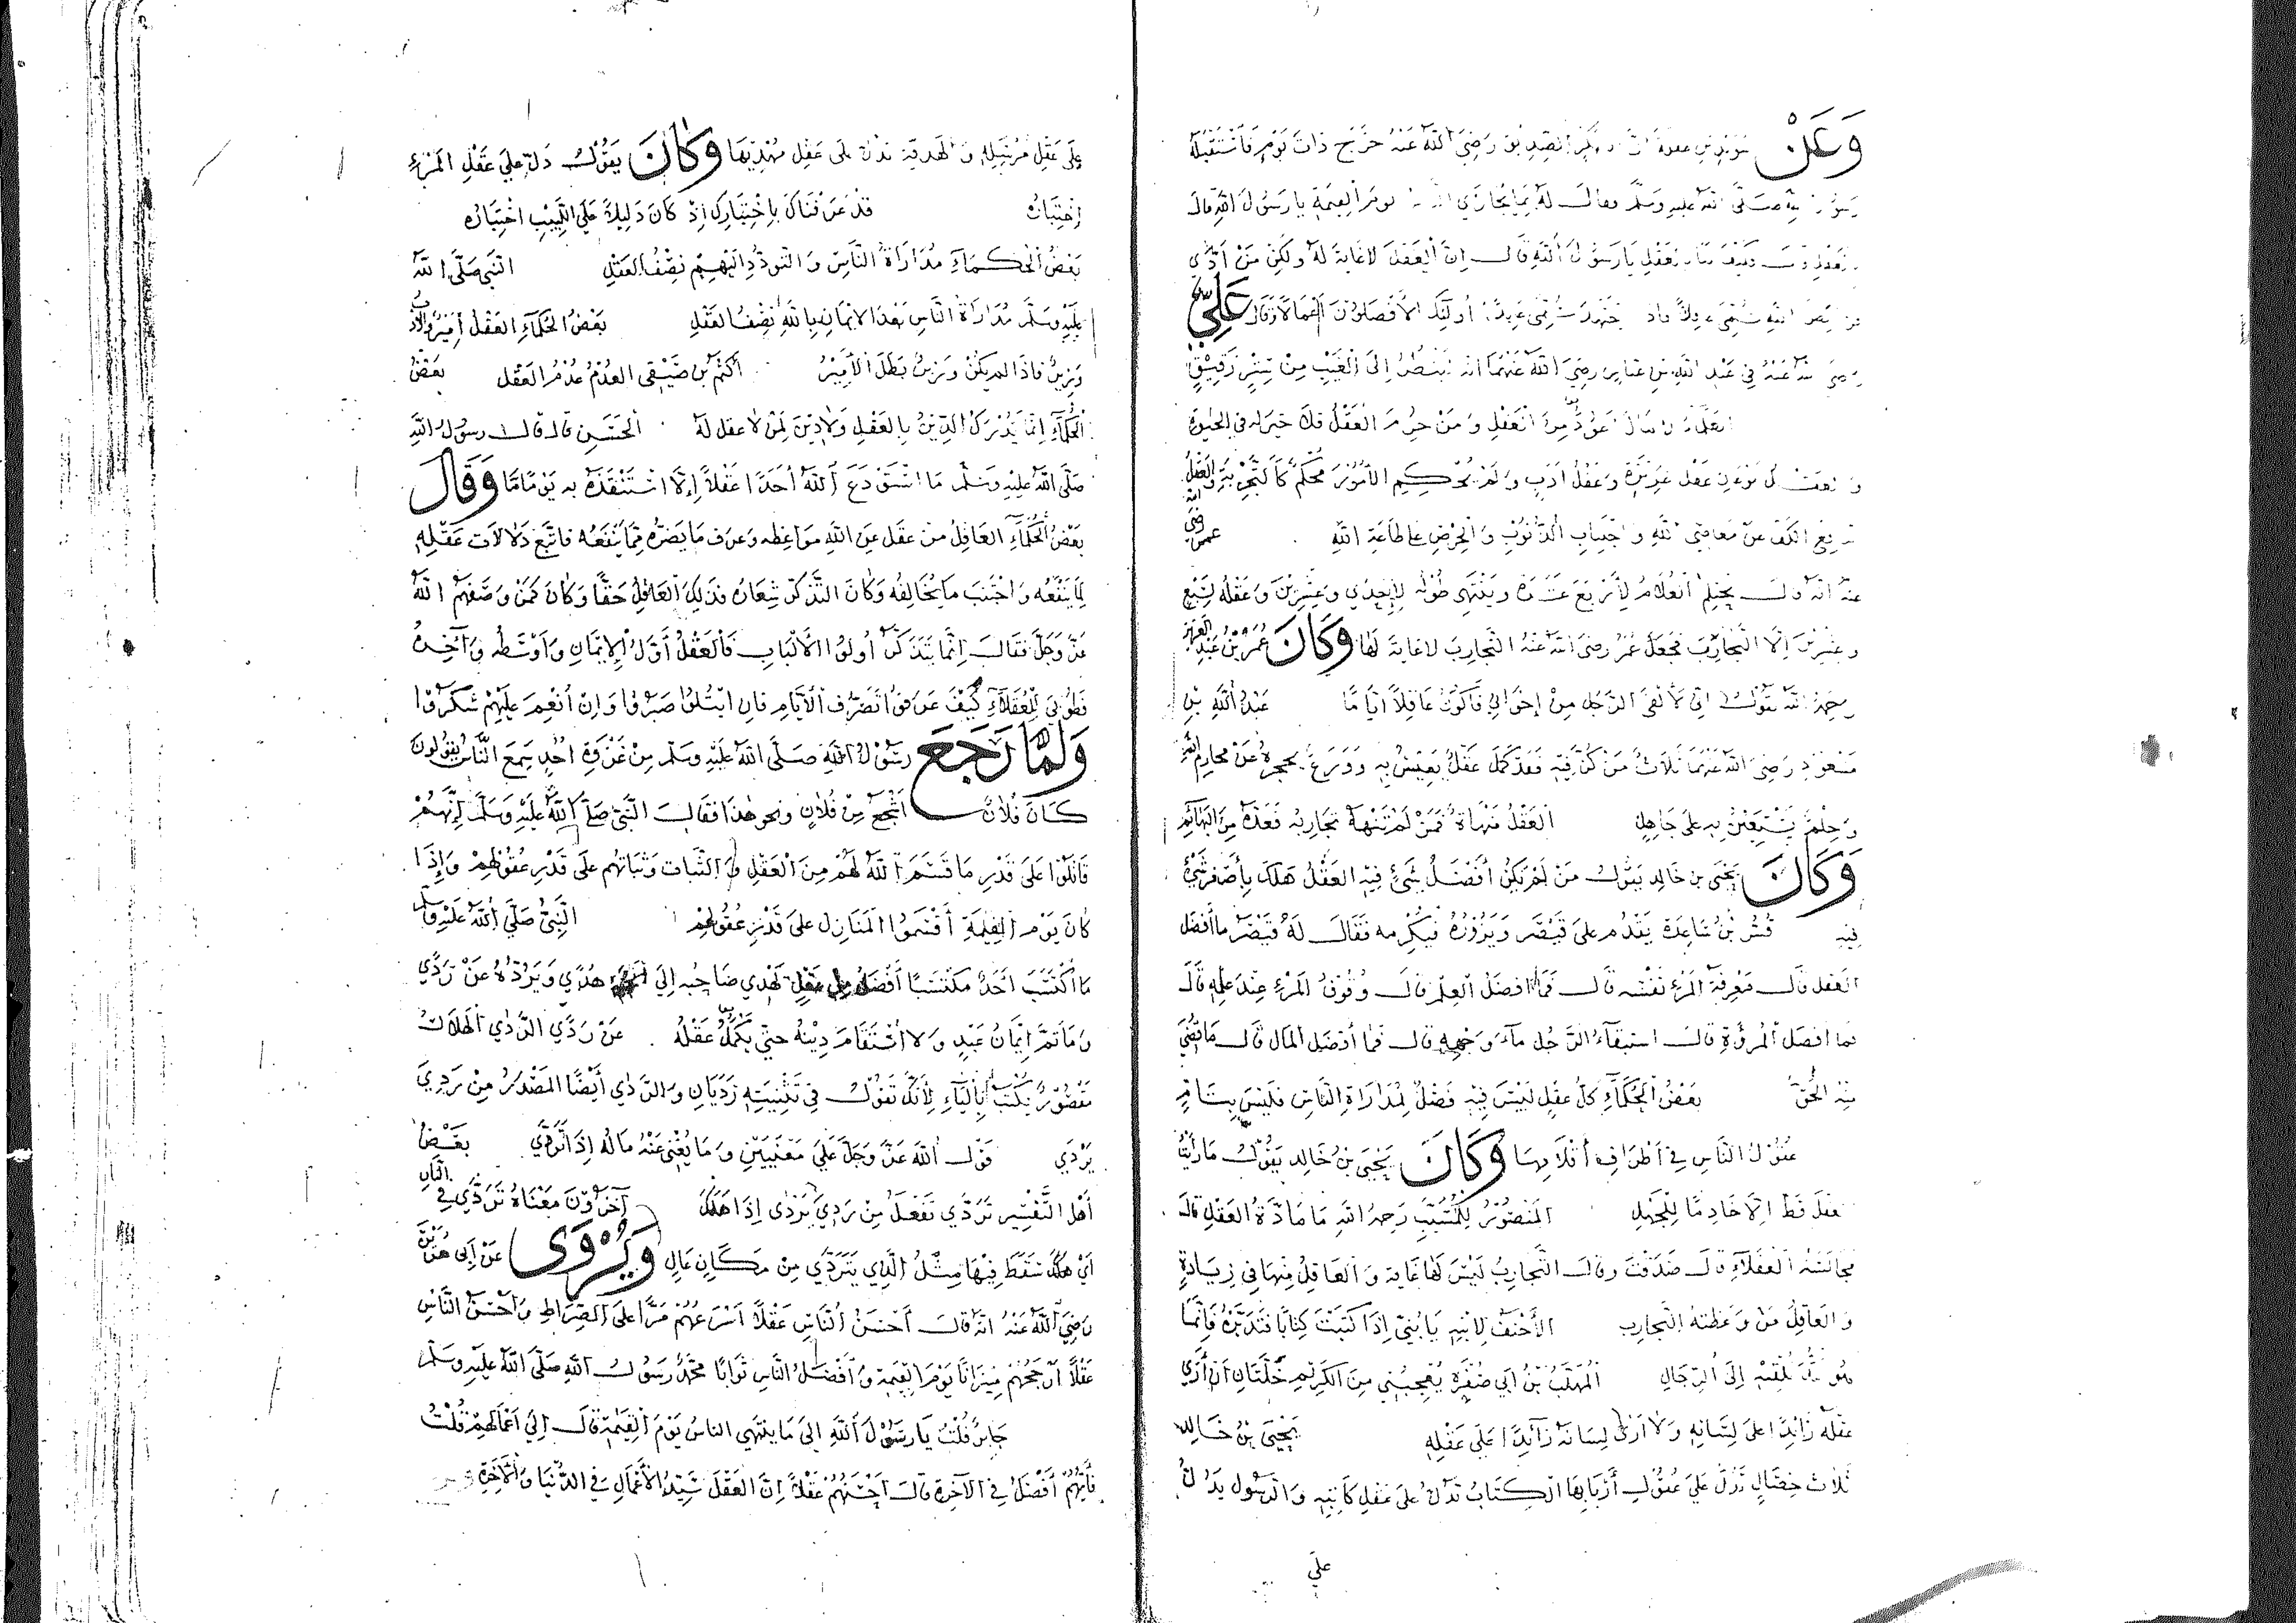 وَعَنْ سُوَيْدِ بنِ غفلة انّ ابا بكر الصِّدِيق رَضِيَ اللهُ عَنْهُ خَرَجَ ذاتَ يَوْمٍ فَاسْتَقْبَلَهُ
رَسُولُ اللهِ صَلَّى اللهُ عليهِ وَسَلَّمَ فقالَ لهُ بِمَا يُجَازَي الناس يومَ القِيمَةِ يا رَسُولَ اللهِ قالَ
بالعَقْلِ قال وكَيْفَ لنا بالعَقْلِ يَا رَسُولَ اللهِ قَالَ إنَّ العَقلَ لا غايةَ لهُ ولكِنْ مَنْ أَدّي
فرائض اللهِ سُمِّيَ عاقِلاً فان اجْتَهَدَ سُمِّيَ عَابِدًا أولَئِكَ الأفضَلُونَ أعمالاً وَقَالَ عَلِيٌّ
رَضِيَ اللهُ عَنْهُ في عَبْدِ اللهِ بنِ عبّاسٍ رضِيَ اللهُ عَنْهُمَا انه لَيَنْظُرُ إلَى الغَيْبِ مِنْ سِتْرٍ رَقِيقٍ
العَقْلِ وَمَنْ حُرِمَ العَقْلَ فلا خيرَ له في الحَيٰوةِ
والعقل نَوْعَانِ عَقْلُ غَرِيزَةٍ وَعَقْلُ أدَبٍ وَلَمْ يُحْكِمِ الأُمُورَ مُحْكِمٌ كَالتَّجْرِبَةِ والعَقْلُ
الكَفُّ عَنْ مَعَاصِي اللهِ واجْتِنَابِ الذُّنُوْبِ وَالحِرْصِ علَى طَاعَةِ اللهِ عمر رضي الله
عنهُ انّه قالَ يَحْتَلِمُ الْغُلَامُ لِأرْبَعَ عَشْرَةَ وَيَنْتَهِي طُوْلُه لإِحْدَي وَعِشْرِيْنَ وَعَقْلُه لِسَبْعٍ
وعِشْرِيْنَ إلَّا التَّجَارِبَ فَجَعَلَ عُمَرُ رضيَ اللهُ عَنْهُ التَّجارِبَ لا غايةَ لَهَا وَكَانَ عُمَرُ بْنُ عَبْدِ العَزِيزِ
رحِمَهُ اللهُ يَقُولُ اني لأَلْقَى الرَّجُلَ مِنْ إخوَانِي فَأكُونُ عَاقِلاً أيَّامًا عَبْدُ اللهِ بنِ
مَسْعُودٍ رَضِيَ اللهُ عَنْهُمَا ثَلَاثٌ مَنْ كُنَّ فِيهِ فَقَدْ كَمَلَ عَقْلٌ يَعِيْشُ بِهِ وَوَرَعٌ يحجزهُ عَنْ محارِمِ اللهِ
وَحِلْمٌ يَسْتَعِيْنُ بِهِ علَى جَاهِلٍ العَقْلُ مَنْهَاةٌ فَمَنْ لَمْ تَنْهَهُ تجَارِبُه فَعُدَّهُ مِنَ البَهَائِمِ
وَكَانَ يَحْيَى بن خالِدٍ يَقُولُ مَن لَمْ يَكُنْ أفْضَلُ شَيْءٍ فِيهِ العَقْلُ هَلَكَ بِأصْغَرِ شَيْءٍ
فِيهِ قُسُّ بْنُ سَاعِدَةَ يَقْدُمُ علَى قَيْصَرَ وَيَزُوْرُهُ فَيُكْرِمه فَقَالَ لَهُ قَيْصَرُ ما أفضَلُ
العَقلِ قَالَ مَعْرِفَةُ المَرْءِ نَفْسَهُ قَالَ فَمَا افضَلُ العِلْمِ قالَ وُقُوفُ المَرْءِ عِنْدَ عِلمِهِ قَالَ
فما افضَلُ المُرُوّةِ قَالَ اسْتِبقَاءُ الرَّجُلِ مآءَ وَجْهِهِ قالَ فَمَا أفضَلُ المَالِ قَالَ مَا قُضِيَ
مِنْهُ الحَقّ بَعْضُ الحُكَمَاءِ كُلُّ عَقْلٍ لَيْسَ فِيهِ فَضْلٌ لِمُدَارَاةِ النَّاسِ فَلَيْسَ بِتَامٍّ
عُقُوْلُ النَّاسِ فِي أطْرَافِ أقْلَامِهَا وَكَانَ يَحْيَى بْنُ خَالِدٍ يَقُولُ مَا رَأيْتُ
عَقْلاً قَطُّ إلَّا خَادِمًا لِلْجَهْلِ المَنْصُوْرُ لِلْمُسَيَّبِ رَحِمَهُ اللهُ مَا مَادَّةُ العَقْلِ قالَ
مُجَالَسَةُ العُقَلَاءِ قَالَ صَدَقْتَ وقَالَ التَّجَارِبُ لَيْسَ لَهَا غَايَة وَالعَاقِلُ مِنْهَا فِي زِيَادَةٍ
وَالعَاقِلُ مَنْ وَعَظَتْهُ التَّجارِب الأحْنَفُ لِابْنِهِ يَا بُنَيَّ إذَا كَتَبْتَ كِتَابًا فَتَدَبَّرْهُ فَإِنَّمَا
هُوَ عَقْلُكَ تُلْقِيْهِ إلَى الرِّجَالِ المُهَلَّبُ بْنُ ابي صُفْرَة يُعْجِبُنِي مِنَ الكَرِيْمِ خَلَّتَانِ أنْ أرَي
عَقْلَهُ زَائِدًا علَى لِسَانِهِ وَلَا أرَى لِسَانَهُ زَآئِدًا عَلَى عَقْلِهِ يَحْيَى بْنُ خَالِد
ثَلَاثُ خِصَالٍ تَدُلُّ عَلَيَ عُقُوْلِ أرْبَابِهَا الكِتَابُ تَدُلُّ علَى عَقْلِ كَاتِبِهِ وَالرَّسُوْل يَدُلُّ
علَى
علَى عَقْلِ مُرْسِلِهِ وَالهَدِيَّةُ تدُلّ علَى عَقْلِ مُهْدِيْهَا وَكَانَ يَقُوْلُ دَلَّ علَيَ عَقْلِ المَرْءِ
اخْتِيَارُهُ قَدْ عَرَفْنَاكَ بِاخْتِيَارِكَ إذْ كَانَ دَلِيْلاً عَلَى اللَّبِيْبِ اخْتِيَارُه
بَعْضُ الحُكَمَاءِ مُدَارَاةُ النَّاسِ وَالتَّوَدُّدُ إلَيْهِمْ نِصْفُ العَقْلِ النَّبِيّ صَلَّى اللهُ
عَلَيْهِ وَسَلَّمَ مُدَارَاةُ النَّاسِ بَعْدَ الإيْمَانِ بِاللهِ نِصْفُ العَقْلِ بَعْضُ الحُكَمَآءِ العَقْلُ أمِيْرٌ والأدَبُ
وَزِيْرٌ فَإذَا لَمْ يَكُنْ وَزِيْرٌ بَطَلَ الأَمِيْرُ أكْثَمُ بن صَيْفِيّ العُدْمُ عُدْمُ العَقْلِ بَعْضُ
الحُكَمَاءِ إنَّمَا يُدْرَكُ الدِّيْنُ بِالعَقْلِ وَلَا دِيْنَ لِمَنْ لَا عَقْلَ لَهُ الحَسَنِ قالَ قَالَ رسولُ اللهِ
صَلَّى اللهُ عَلَيْهِ وَسَلَّمَ مَا اسْتَوْدَعَ اللهُ أحَدًا عَقْلاً إلَّا اسْتَنْقَذَهُ به يَوْمًا مَّا وَقَالَ
بَعْضُ الحُكَمَآءِ العَاقِلُ مَنْ عَقَلَ عَنِ اللهِ مَوَاعِظَه وَعَرَفَ مَا يَضُرُّه مِمَّا يَنْفَعُهُ فاتَّبَعَ دَلَالَاتِ عَقْلِهِ
لِمَا يَنْفَعُه وَاجْتَنَبَ مَا يُخَالِفُه وَكَانَ التَّذَكُّرُ شِعَارَهُ فَذَلِكَ العَاقِلُ حَقًّا وَكَانَ كَمَنْ وَصَفَهُم اللهُ
عَزَّ وَجَلَّ فَقَالَ إنَّمَا يَتَذَكَّرُ أولُوا الأَلْبَابِ فَالعَقْلُ أوَّلُ الإيْمَانِ وَأوْسَطُه وَآخِرُهُ
فَطُوْبَى لِلْعُقَلَآءِ كَيْفَ عَرَفُوْا تَصَرُّفَ الأَيَّامِ فَإنِ ابْتُلُوْا صَبَرُوْا وَإنْ أُنْعِمَ عَلَيْهِمْ شَكَرُوْا
وَلَمَّا رَجَعَ رَسُوْلُ اللهِ صَلَّى اللهُ عَلَيْهِ وَسَلَّمَ مِنْ غَزْوَةِ أُحُدٍ سَمِعَ النَّاسَ يَقُوْلُونَ
كَانَ فُلَانٌ أشْجَعَ مِنْ فُلَانٍ ونحو هٰذا فَقَالَ النَّبِيّ صَلَّى اللهُ عَلَيْهِ وَسَلَّمَ إنَّهُمْ
قَاتَلُوْا علَى قَدْرِ مَا قَسَمَ اللهُ لَهُمْ مِنَ العَقْلِ وَالثَّبَات وَثَبَاتُهم علَى قَدْرِ عُقُوْلِهِمْ وَإذَا
كَانَ يَوْم القِيٰمَةِ أقْتَسَمُوا المَنَازِلَ علَى قَدْرِ عُقُوْلِهِمْ النَّبِيّ صَلَّى اللهُ عَلَيْهِ وَسَلَّمَ
مَا اكْتَسَبَ أحَدٌ مُكْتَسَبًا أفْضَلَ مِنْ عَقْلٍ يَهْدِي صَاحِبَه إلَيَ هُدًي وَيَرُدُّهُ عَنْ رَدًي
وَمَا تَمَّ إيْمَانُ عَبْدٍ وَلَا اسْتَقَامَ دِيْنُهُ حتّي يَكْمُلَ عَقْلُهُ عَنْ رَدًي الرَّدٰي الهَلَاكُ
مَقْصُوْرٌ يُكْتَبُ بِاليَآءِ لِأنَّكَ تَقُوْلُ فِي تَثْنِيَتِهِ رَدَيَانِ وَالرَّدٰي أيْضًا المَصْدَرُ مِنْ رَدِيَ
يَرْدَي قَوْل اللهُ عَزَّ وَجَلَّ عَلَيَ مَعْنَيَيْنِ وَمَا يُغْنِي عَنْهُ مَالُه إذَا تَرَدّٰي بَعْضُ
أهْلِ التَّفْسِيْرِ تَرَدّٰي تَفَعَّلَ مِنْ رَدِيَ يَرْدٰى إذَا هَلَكَ آخَرُوْنَ مَعْنَاهُ تَرَدّٰي فِي النَّارِ
أيْ سَقَطَ فِيْهَا مِثْلُ الَّذِي يَتَرَدّٰي مِنْ مَكَانٍ عَالٍ وَيُرْوَى عَنْ أبِى هُرَيْرَةَ
رَضِيَ اللهُ عَنْهُ انّهُ قَالَ أحْسَنُ النَّاسِ عَقْلاً أسْرَعُهُمْ مَرًّا علَى الصِّرَاطِ وَأحْسَنُ النَّاسِ
عَقْلاً أرْجَحُهُمْ مِيزَانًا يَوْمَ القِيمَةِ وَأفْضَلُ النَّاسِ ثَوَابًا مُحَمَّدٌ رَسُوْلُ اللهِ صَلَّى اللهُ عَلَيْهِ وَسَلَّمَ
جَابِرٌ قُلْتُ يَا رَسُوْلَ اللهِ إلَيَ مَا يَنْتَهِي الناسُ يَوْمَ القِيٰمَةِ قَالَ إلَيَ أعْمَالِهِمْ قُلْتُ
فَأيُّهُمْ أفْضَلُ فِي الآخِرَةِ قَالَ أحْسَنُهُمْ عَقْلاً إنَّ العَقْلَ سَيِّدُ الأَعْمَالِ فِي الدُّنْيَا وَالآخِرَةِ